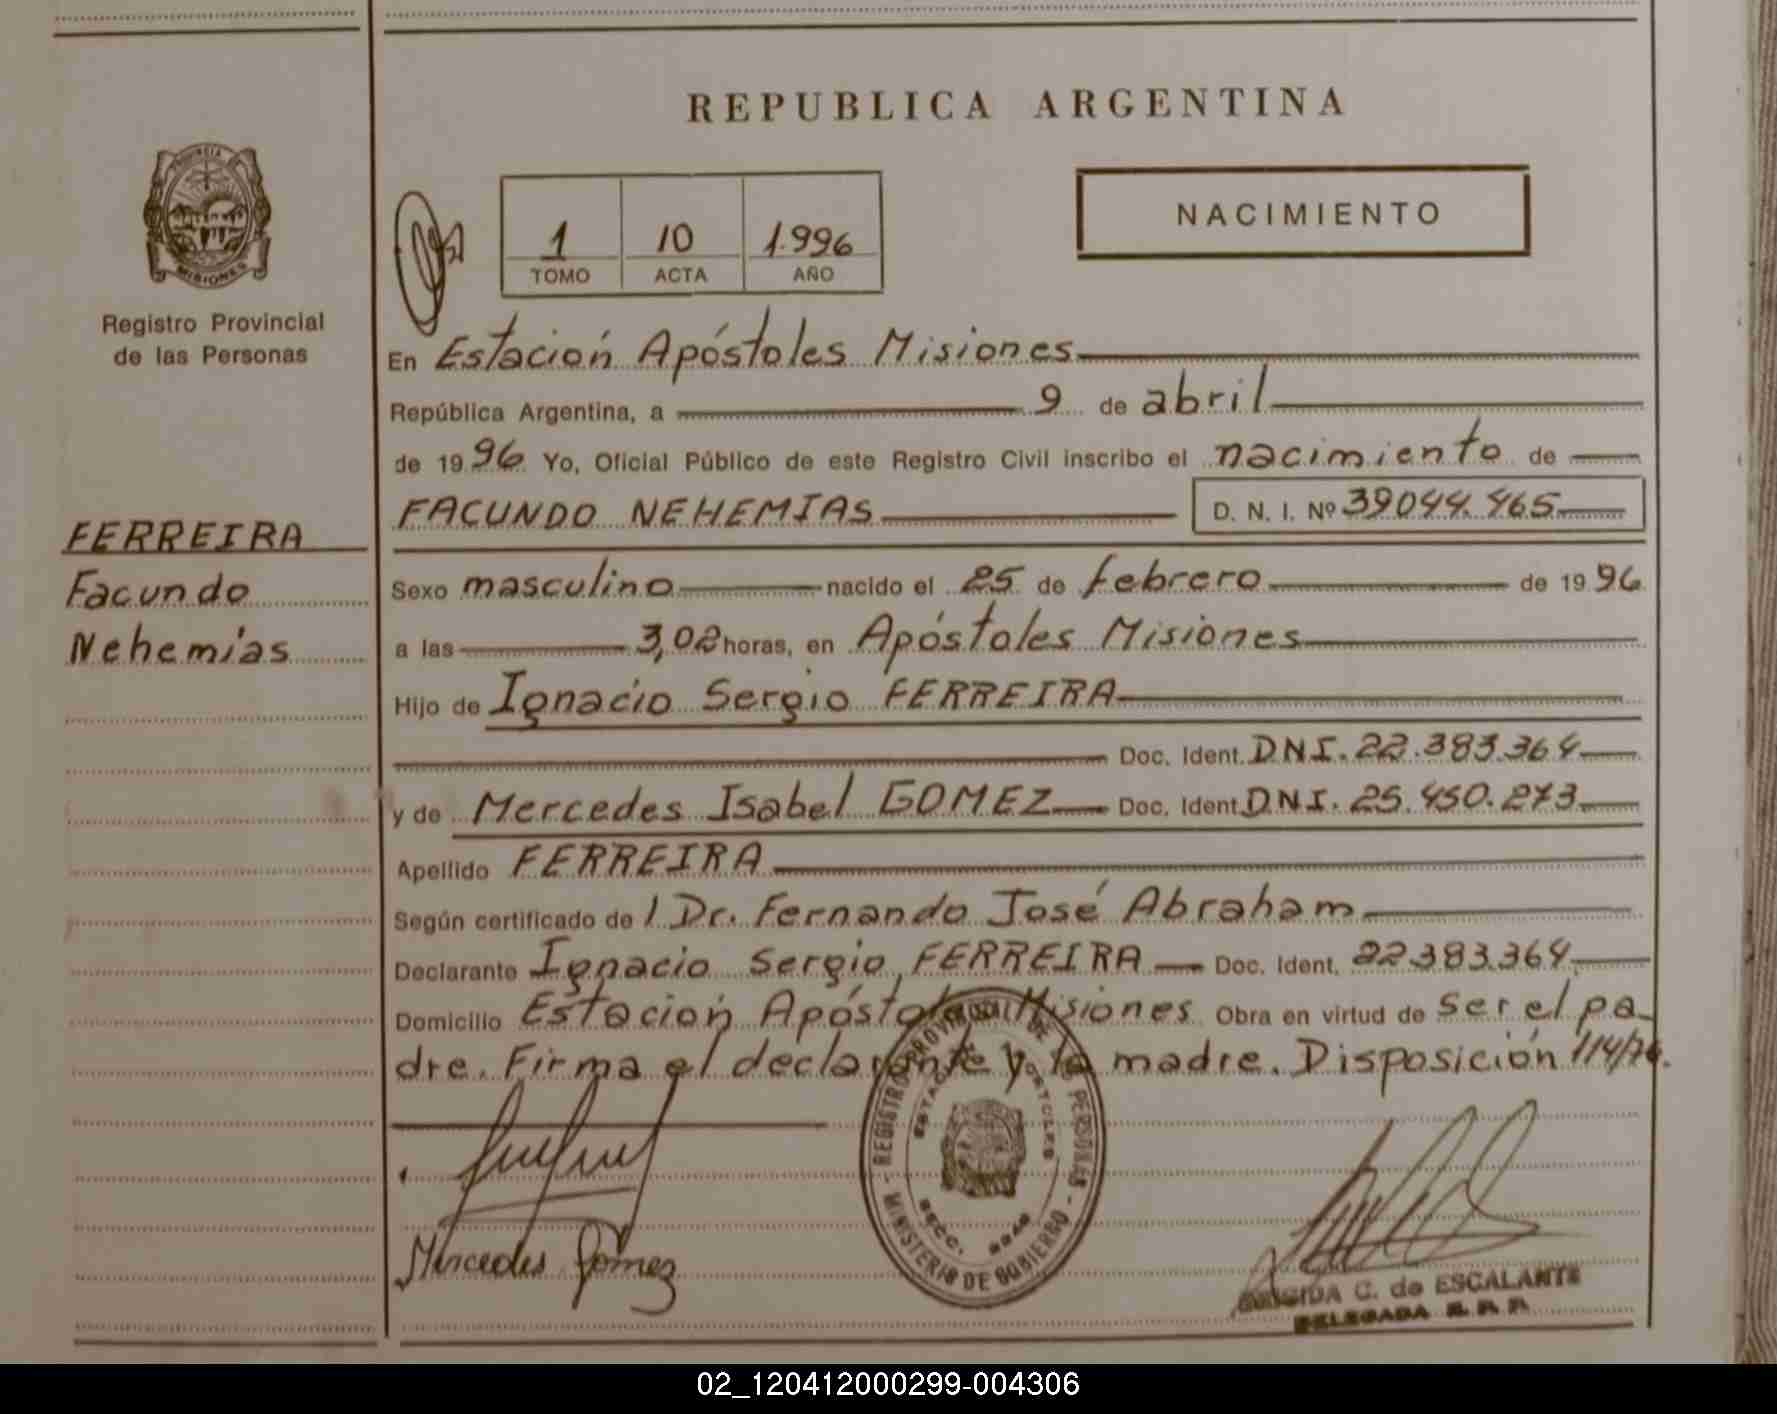 REPUBLICA ARGENTINA
PROVINCIA DE
MISIONES
Registro Provincial
de las Personas
1 10 1.996
TOMO ACTA AÑO
NACIMIENTO
En Estación Apóstoles Misiones
República Argentina, a 9 de abril
de 1996 Yo, Oficial Público de este Registro Civil inscribo el nacimiento de
FACUNDO NEHEMIAS D. N. I. Nº 39044.465
FERREIRA
Facundo
Nehemías
Sexo masculino nacido el 25 de febrero de 1996
a las 3,02 horas, en Apóstoles Misiones
Hijo de Ignacio Sergio FERREIRA
Doc. Ident. DNI. 22.383.364
y de Mercedes Isabel GOMEZ Doc. Ident DNI. 25.450.273
Apellido FERREIRA
Según certificado de l Dr. Fernando José Abraham
Declarante Ignacio Sergio FERREIRA Doc. Ident. 22383.364
Domicilio Estación Apóstoles Misiones Obra en virtud de ser el pa
dre. Firma el declarante y la madre. Disposición 114/76.
REGISTRO PROVINCIAL DE LAS PERSONAS - MINISTERIO DE GOBIERNO -
SECC.
Mercedes Gómez
C. de ESCALANTE
DELEGADA R. P. P.
02_120412000299-004306